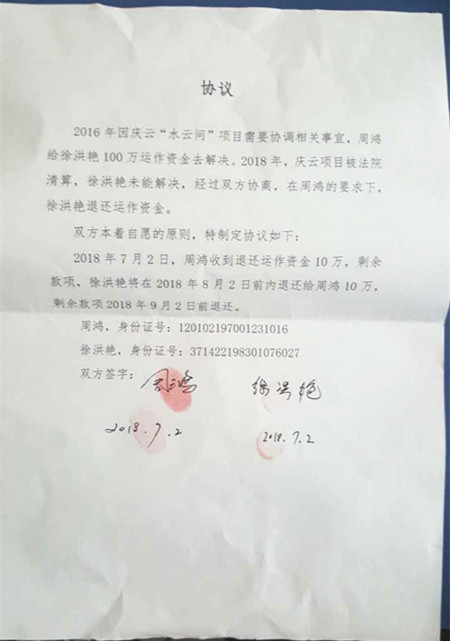 协议
2016年因庆云“水云间”项目需要协调相关事宜，周鸿
给徐洪艳100万运作资金去解决。2018年，庆云项目被法院
清算，徐洪艳未能解决，经过双方协商，在周鸿的要求下，
徐洪艳退还运作资金。
双方本着自愿的原则，特制定协议如下：
2018年7月2日，周鸿收到退还运作资金10万，剩余
款项，徐洪艳将在2018年8月2日前内退还给周鸿10万，
剩余款项2018年9月2日前退还。
周鸿，身份证号：120102197001231016
徐洪艳，身份证号：371422198301076027
双方签字： 周鸿 徐洪艳
2018.7.2 2018.7.2